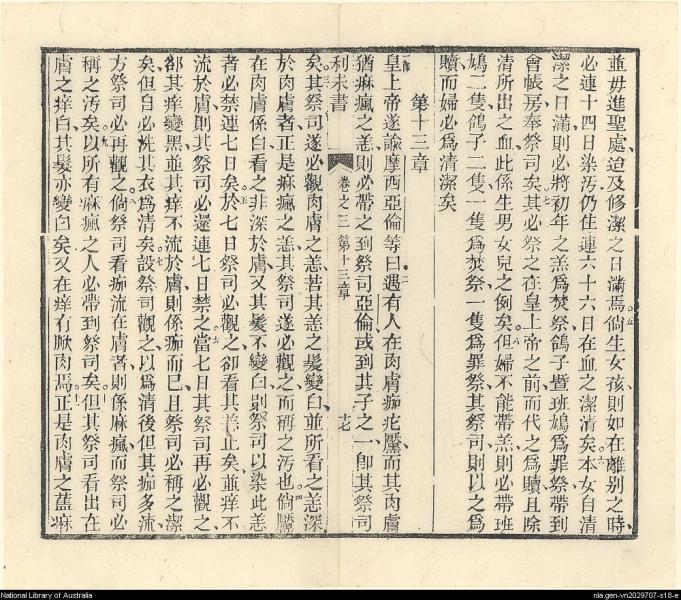 並毋進聖處迨及修潔之日滿焉倘生女孩則如在離別之時
必連十四日染汚仍住連六十六日在血之潔清矣本女自清
潔之日滿則必將初年之羔爲焚祭鴿子曁班鳩爲罪祭帶到
會帳房奉祭司矣其必祭之在皇上帝之前而代之爲贖且除
清所出之血此係生男女兒之例矣但婦不能帶羔則必帶班
鳩二隻鴿子二隻一隻爲焚祭一隻爲罪祭其祭司則以之爲
贖而婦必爲清潔矣
第十三章
皇上帝遂諭摩西亞倫等曰遇有人在肉膚痂疕黶而其肉膚
猶痳瘋之恙則必帶之到祭司亞倫或到其子之一卽其祭司
利未書 卷之三 第十三章
矣其祭司遂必觀肉膚之恙若其恙之髮變白並所看之恙深
於肉膚者正是痳瘋之恙其祭司遂必觀之而稱之汚也倘黶
在肉膚係白看之非深於膚又其髮不變白則祭司以染此恙
者必禁連七日矣於七日祭司必觀之卻看其恙止矣並痒不
流於膚則其祭司必還連七日禁之當七日其祭司再必觀之
卻其痒變黑並其痒不流於膚則係痂而已且祭司必稱之潔
矣但自必洗其衣爲清矣設祭司觀之以爲清後但其痂多流
方祭司必再觀之倘祭司看痂流在膚者則係痳瘋而祭司必
稱之汚矣以所有痳瘋之人必帶到祭司矣但其祭司看出在
膚之痒白其髮亦變白矣又在痒有瘀肉焉正是肉膚之舊痳
National Library of Australia
nla.gen-vn2029707-s18-e